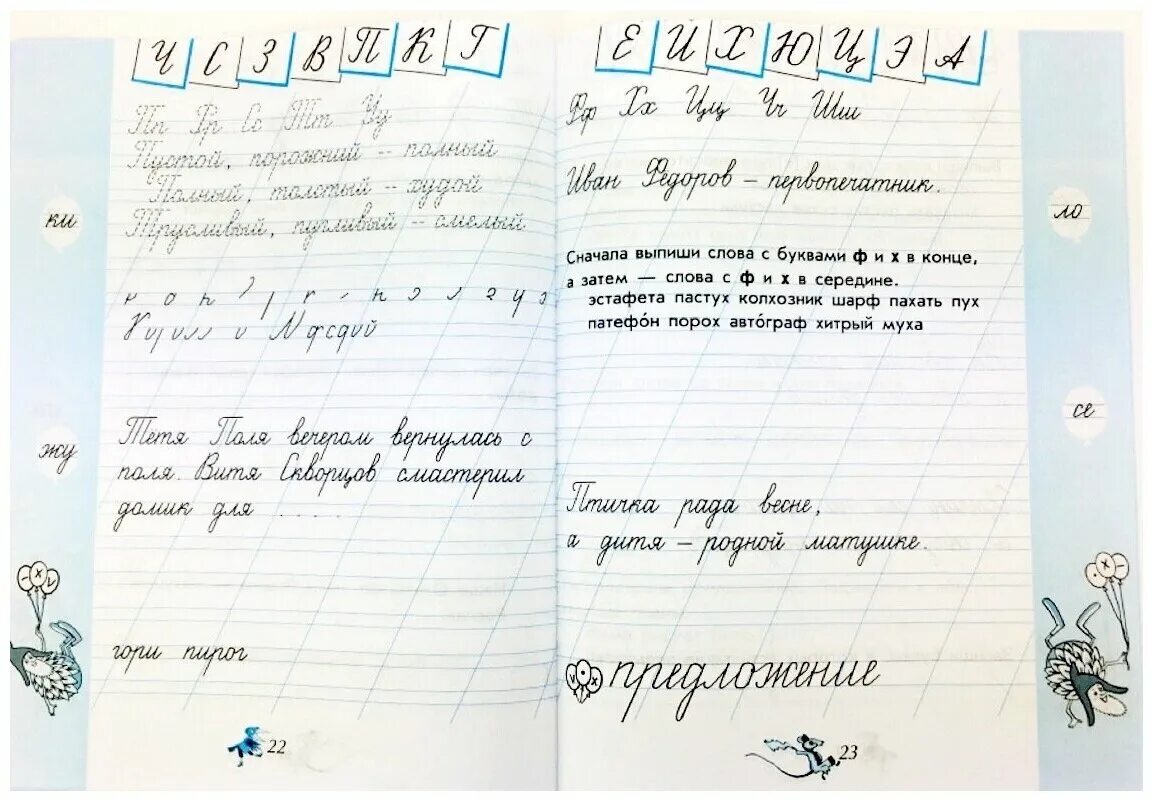 Ч С З В П К Г
Пп Рр Сс Тт Уу
Пустой, порожний – полный
Полный, толстый – худой
Трусливый, пугливый – смелый
ки
Тётя Поля вечером вернулась с
поля. Витя Скворцов смастерил
домик для . . . . .
жу
гори пирог
22
Е Й Х Ю Ц Э А
Фф Хх Цц Чч Шш
Иван Фёдоров – первопечатник.
ло
Сначала выпиши слова с буквами ф и х в конце,
а затем — слова с ф и х в середине.
эстафета пастух колхозник шарф пахать пух
патефо́н порох авто́граф хитрый муха
се
Птичка рада весне,
а дитя – родной матушке.
предложение
23